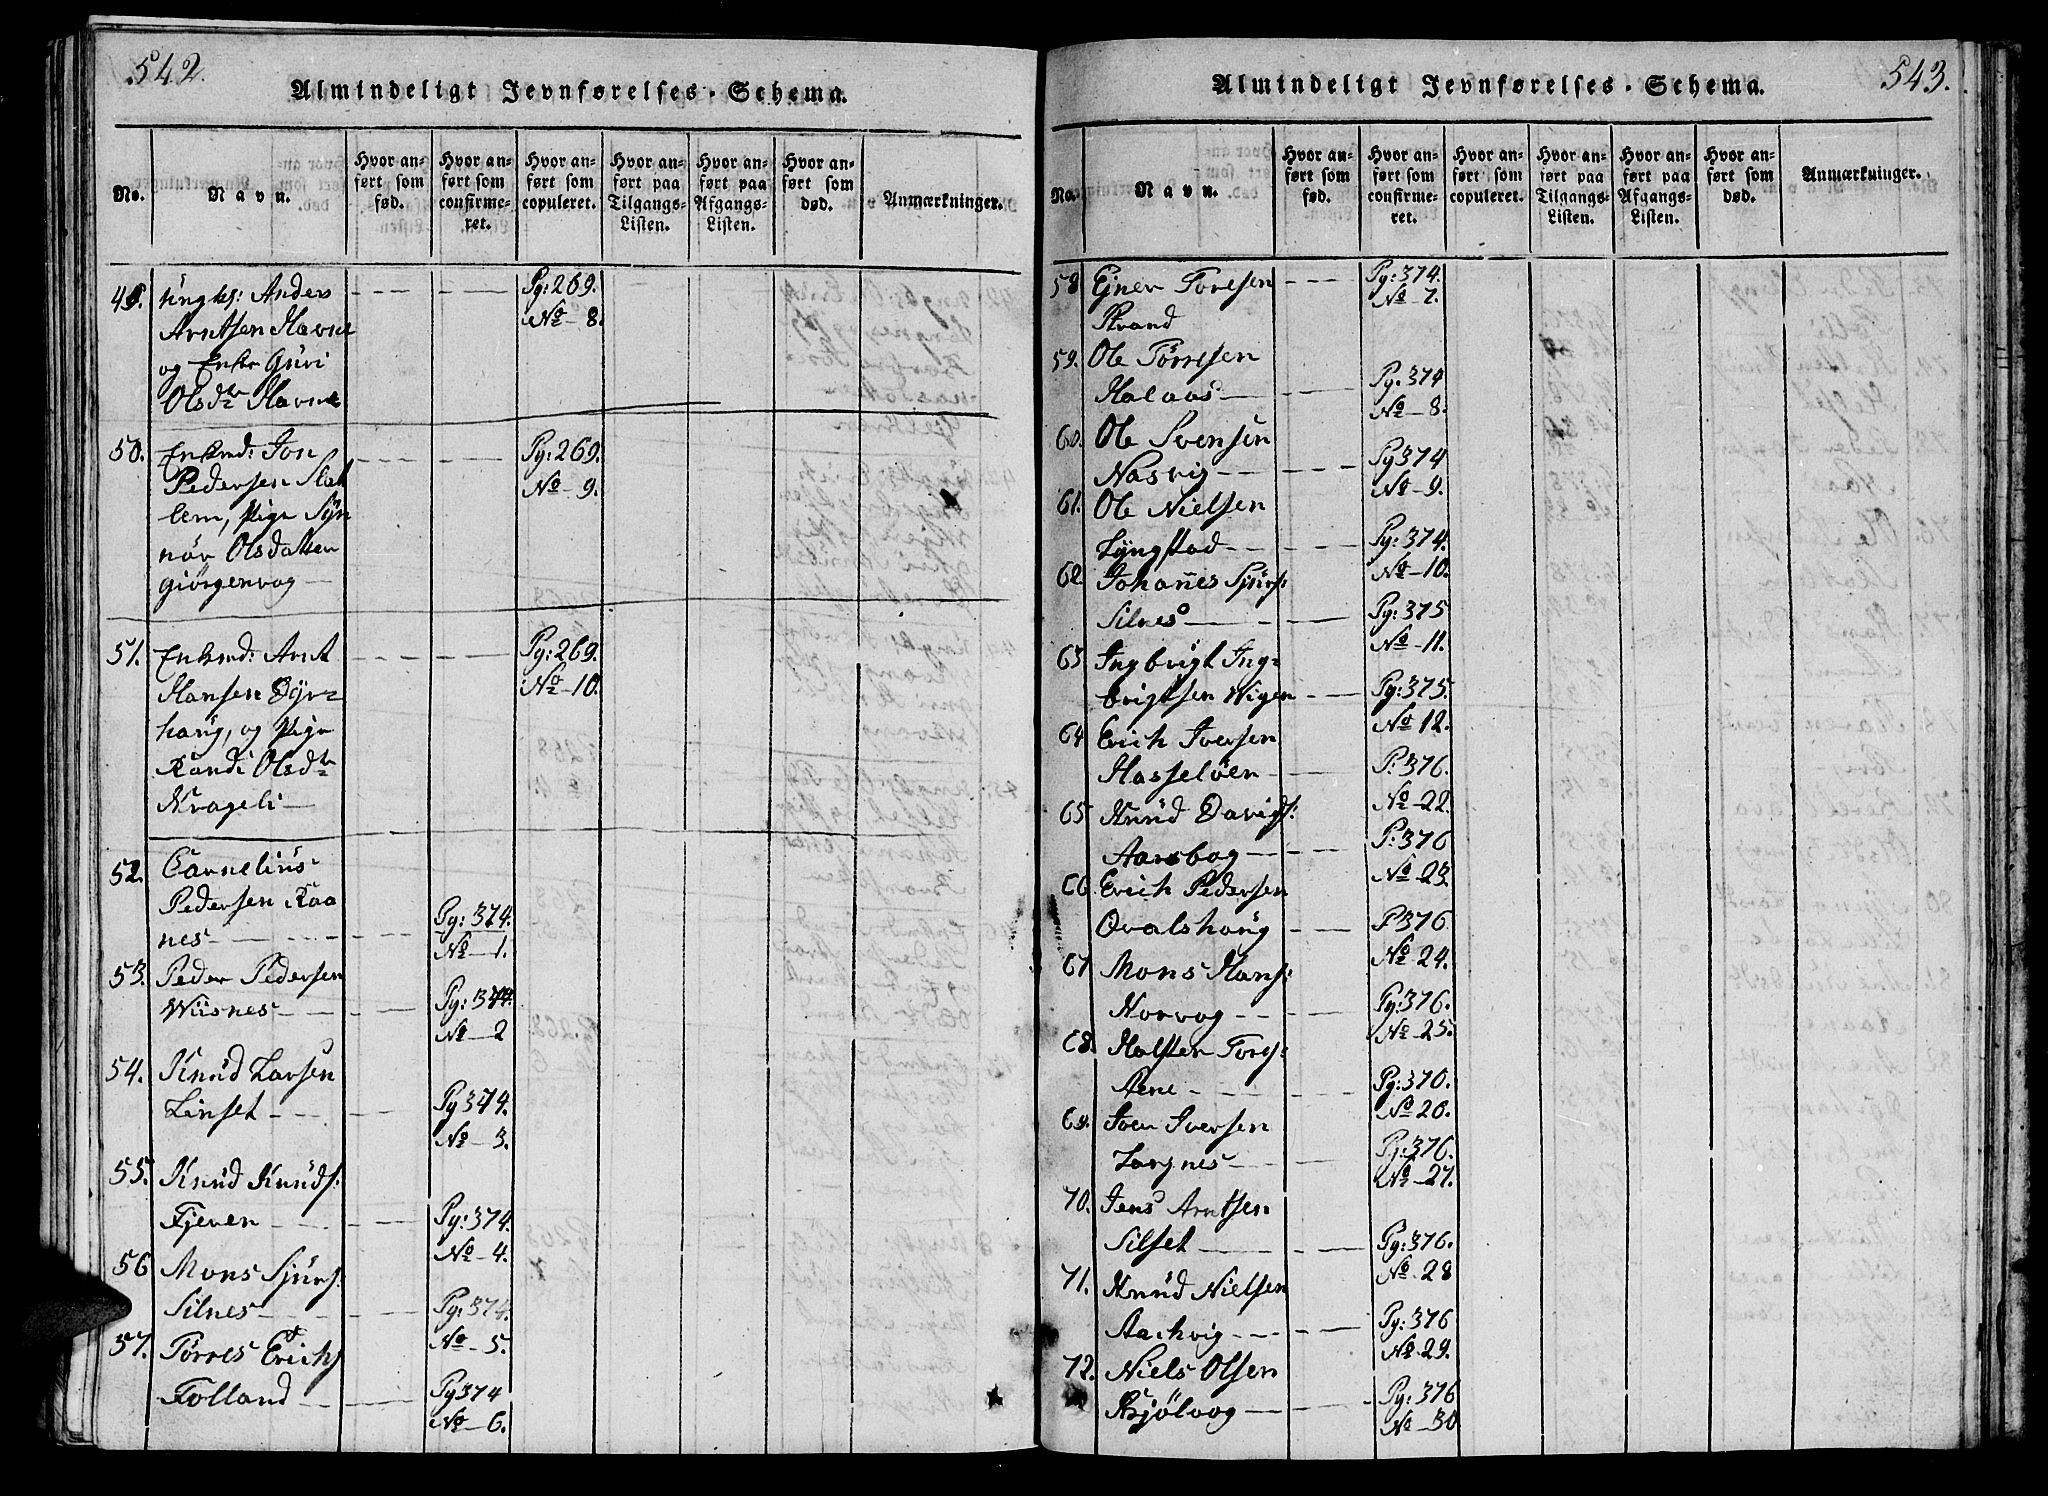 542.
Almindeligt Jevnførelses-Schema.
No.
Navn.
Hvor an-
ført som
fød.
Hvor an-
ført som
confirme-
ret.
Hvor an-
ført som
copuleret.
Hvor an-
ført paa
Tilgangs-
Listen.
Hvor an-
ført paa
Afgangs-
Listen.
Hvor an-
ført som
død.
Anmærkninger.
49. Ungks: Anders Pg: 269.
Arntsen Havne No 8.
og Enke Guri
Olsdtr Havne
50. Enkmd: Jon Pg: 269.
Pedersen Slat No 9.
lem, Pige Syn
növ Olsdatter
giörgenvog
51. Enkmd: Arnt Pg: 269.
Hansen Dyr= No 10.
haug, og Pige
Randi Olsdtr
Krageli
52. Cornelius
Pedersen Raa Pg: 374.
nes No 1.
53. Peder Pedersen
Wiisnes Pg: 374.
No 2
54. Knud Larsen
Linset Pg 374.
No 3.
55. Knud Knuds:
Fjeven Pg: 374.
No 4.
56 Mons Sjurs:
Silnes Pg: 374.
57. Torres Erichs No 5.
Folland Pg 374
No 6.
543.
Almindeligt Jevnførelses-Schema.
No.
Navn.
Hvor an-
ført som
fød.
Hvor an-
ført som
confirme-
ret.
Hvor an-
ført som
copuleret.
Hvor an-
ført paa
Tilgangs-
Listen.
Hvor an-
ført paa
Afgangs-
Listen.
Hvor an-
ført som
død.
Anmærkninger.
58 Ejner Toresen Pg: 374.
Strand No 7.
59. Ole Törresen
Halaas Pg. 374
No 8.
60. Ole Svensen
Nasvig Pg 374
No 9.
61. Ole Nielsen
Lyngstad Pg: 374.
No 10.
62. Johannes Sjurs:
Silnes Pg: 375
No 11.
63 Ingbrigt Ing=
brigtsen Wigen Pg: 375.
No 12.
64 Erich Iversen
Hasselöen P: 376.
No 22.
65 Knud Davids:
Aarsbog P: 376
No 23.
66 Erich Pedersen
Ovalshoug P 376
No 24.
67 Mons Hans:
Norvog Pg: 376.
No 25.
68. Halsten Tores:
Rene Pg: 376.
No 26.
69. Iver Iversen
Langnes Pg: 376.
No 27.
70. Jens Arntsen
Silset Pg: 376.
No 28
71. Knud Nielsen
Aachvig Pg: 376
No 29.
72. Niels Olsen
Skjölvog Pg: 376
No 30